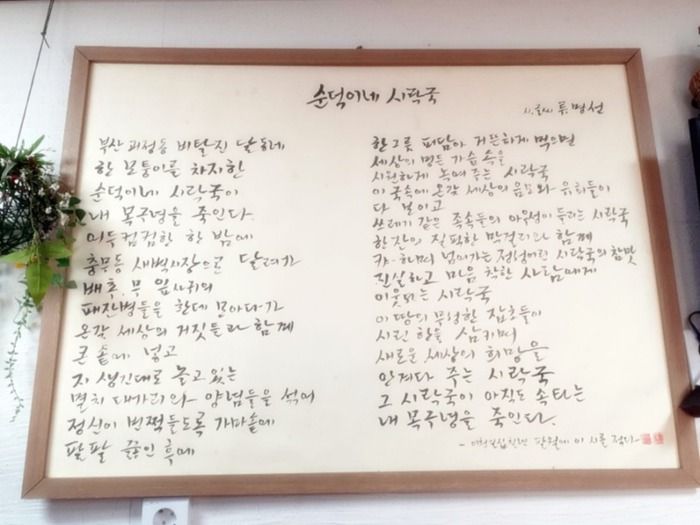 순덕이네 시락국
시, 글씨 류명선
부산 괴정동 비탈진 날로에
한 모퉁이를 차지한
순덕이네 시락국이
내 목구멍을 죽인다.
어두컴컴한 한 밤에
충무동 새벽시장으로 달려가
배추, 무 잎사귀의
패잔병들을 한데 모아다가
온갖 세상의 거짓들과 함께
큰 솥에 넣고
지 생긴대로 놀고 있는
멸치 대가리와 양념들을 섞어
정신이 번쩍들도록 가마솥에
팔팔 끓인 후에
한그릇 퍼담아 거뜬하게 먹으면
세상의 멍든 가슴 속을
시원하게 녹여 주는 시락국
이 국속에 온갖 세상의 음모와 유희들이
다 보이고
쓰레기 같은 족속들의 아우성이 들리는 시락국
한잔의 질퍽한 막걸리와 함께
캬- 하며 넘어가는 정성어린 시락국의 참맛
진실하고 마음 착한 사람에게
이웃되는 시락국
이 땅의 무성한 잡초들이
시린 한을 삼키며
새로운 세상의 희망을
안겨다 주는 시락국
그 시락국이 아직도 속타는
내 목구멍을 죽인다.
- 이천십년 팔월에 이 시를 적다-